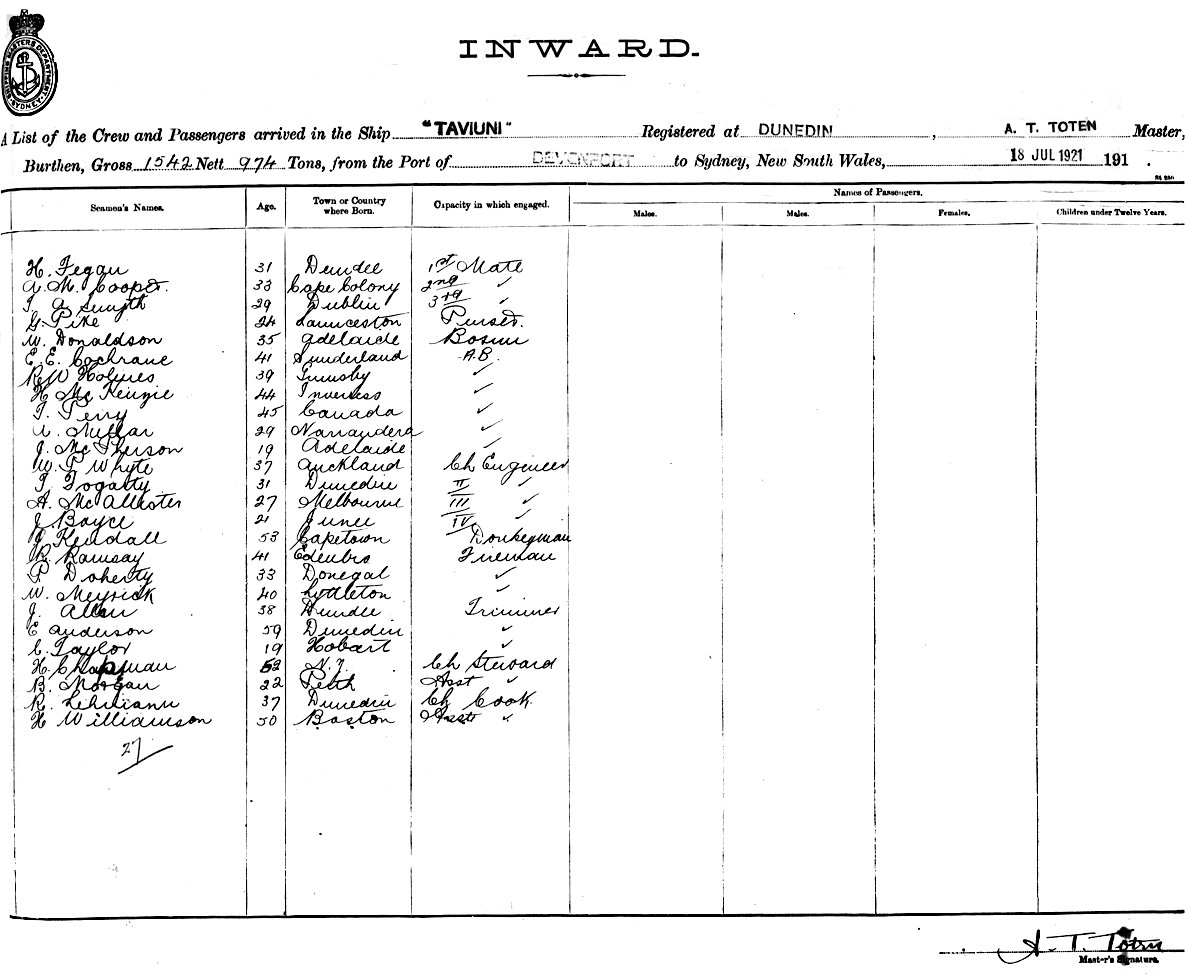 SHIPPING MASTERS DEPARTMENT SYDNEY
INWARD.
A List of the Crew and Passengers arrived in the Ship "TAVIUNI" Registered at DUNEDIN , A. T. TOTEN Master,
Burthen, Gross 1542 Nett 974 Tons, from the Port of DEVONPORT to Sydney, New South Wales, 18 JUL 1921 191 .
Seamen's Names. Age. Town or Country where Born. Capacity in which engaged. Names of Passengers.
Males. Males. Females. Children under Twelve Years.
H. Fegan 31 Dundee 1st Mate
A. M. Cooper. 33 Cape Colony 2nd ✓
T. A. Smyth 29 Dublin 3rd ✓
G. Pike 24 Launceston Purser.
W. Donaldson 35 Adelaide Bosun
E. E. Cochrane 41 Sunderland A.B.
R W Holmes 39 Grimsby ✓
H McKenzie 44 Inverness ✓
T. Perry 45 Canada ✓
A. Millar 29 Narrandera ✓
J. McPherson 19 Adelaide ✓
W. P Whyte 37 Auckland Ch Engineer
T. Fogatty 31 Dunedin II ✓
A. McAllister 27 Melbourne III ✓
J Boyce 21 Junee IV ✓
J Kendall 53 Capetown Donkeyman
R. Ramsay 41 Edenbro Fireman
P Doherty 33 Donegal ✓
W. Meyrick 40 Lyttleton ✓
J. Allan 38 Dundee Trimmer
E Anderson 59 Dunedin ✓
C. Taylor 19 Hobart ✓
H. Chapman 52 N.Z. Ch Steward
B. Morgan 22 Perth Asst ✓
R. Lehmann 37 Dunedin Ch Cook
H Williamson 50 Boston Asst ✓
27
A. T. Toten
Master's Signature.